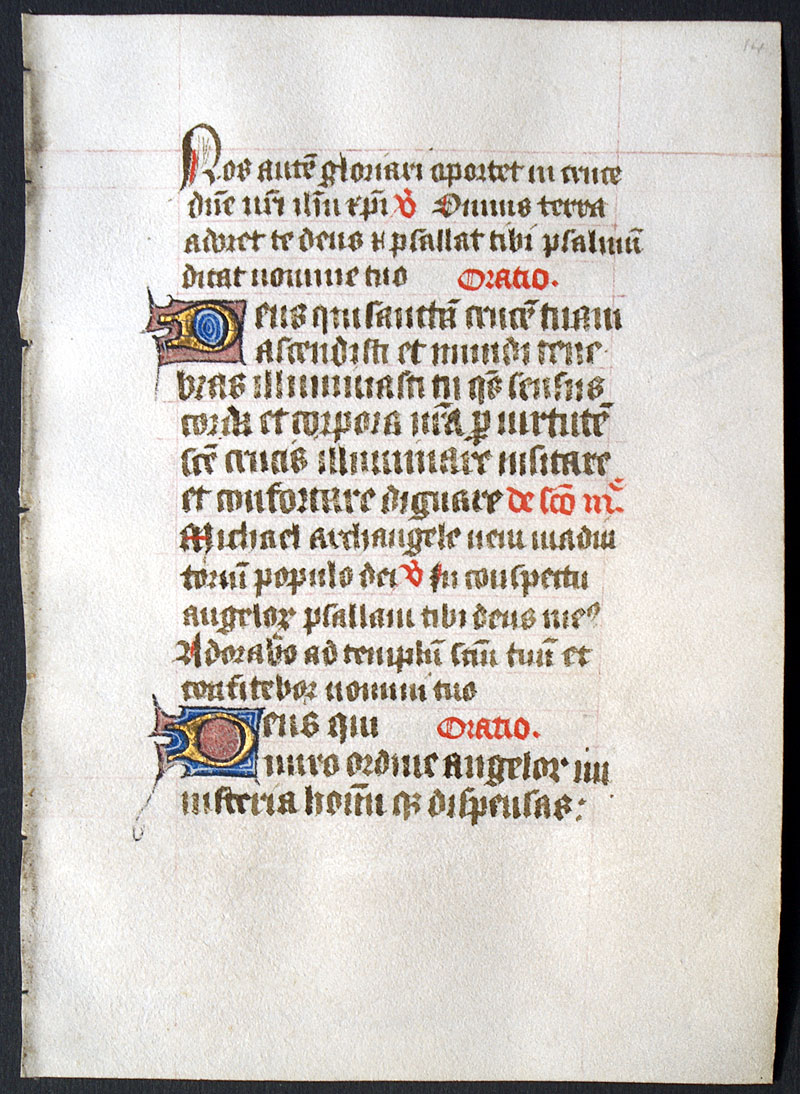 14
Nos autē gloriari oportet in cruce
dnē nrī ihū xpī ℣ Omnis terra
adoret te deus et psallat tibi psalmū
dicat nomine tuo Oratio.
Deus qui sanctā crucē tuam
ascendisti et mundi tene
bras illuminasti tu qs̄ sensus
corda et corpora nrā ꝑ virtutē
scē crucis illuminare visitare
et confortare dignare de scō m͞c
Michael archangele veni in adiu
toriū populo dei ℣ In conspectu
angeloꝝ psallam tibi deus meꝰ
Adorabo ad templū scm̄ tuū et
confitebor nomini tuo
Deus qui Oratio.
miro ordine angeloꝝ mi
nisteria hoīm qꝫ dispensas: